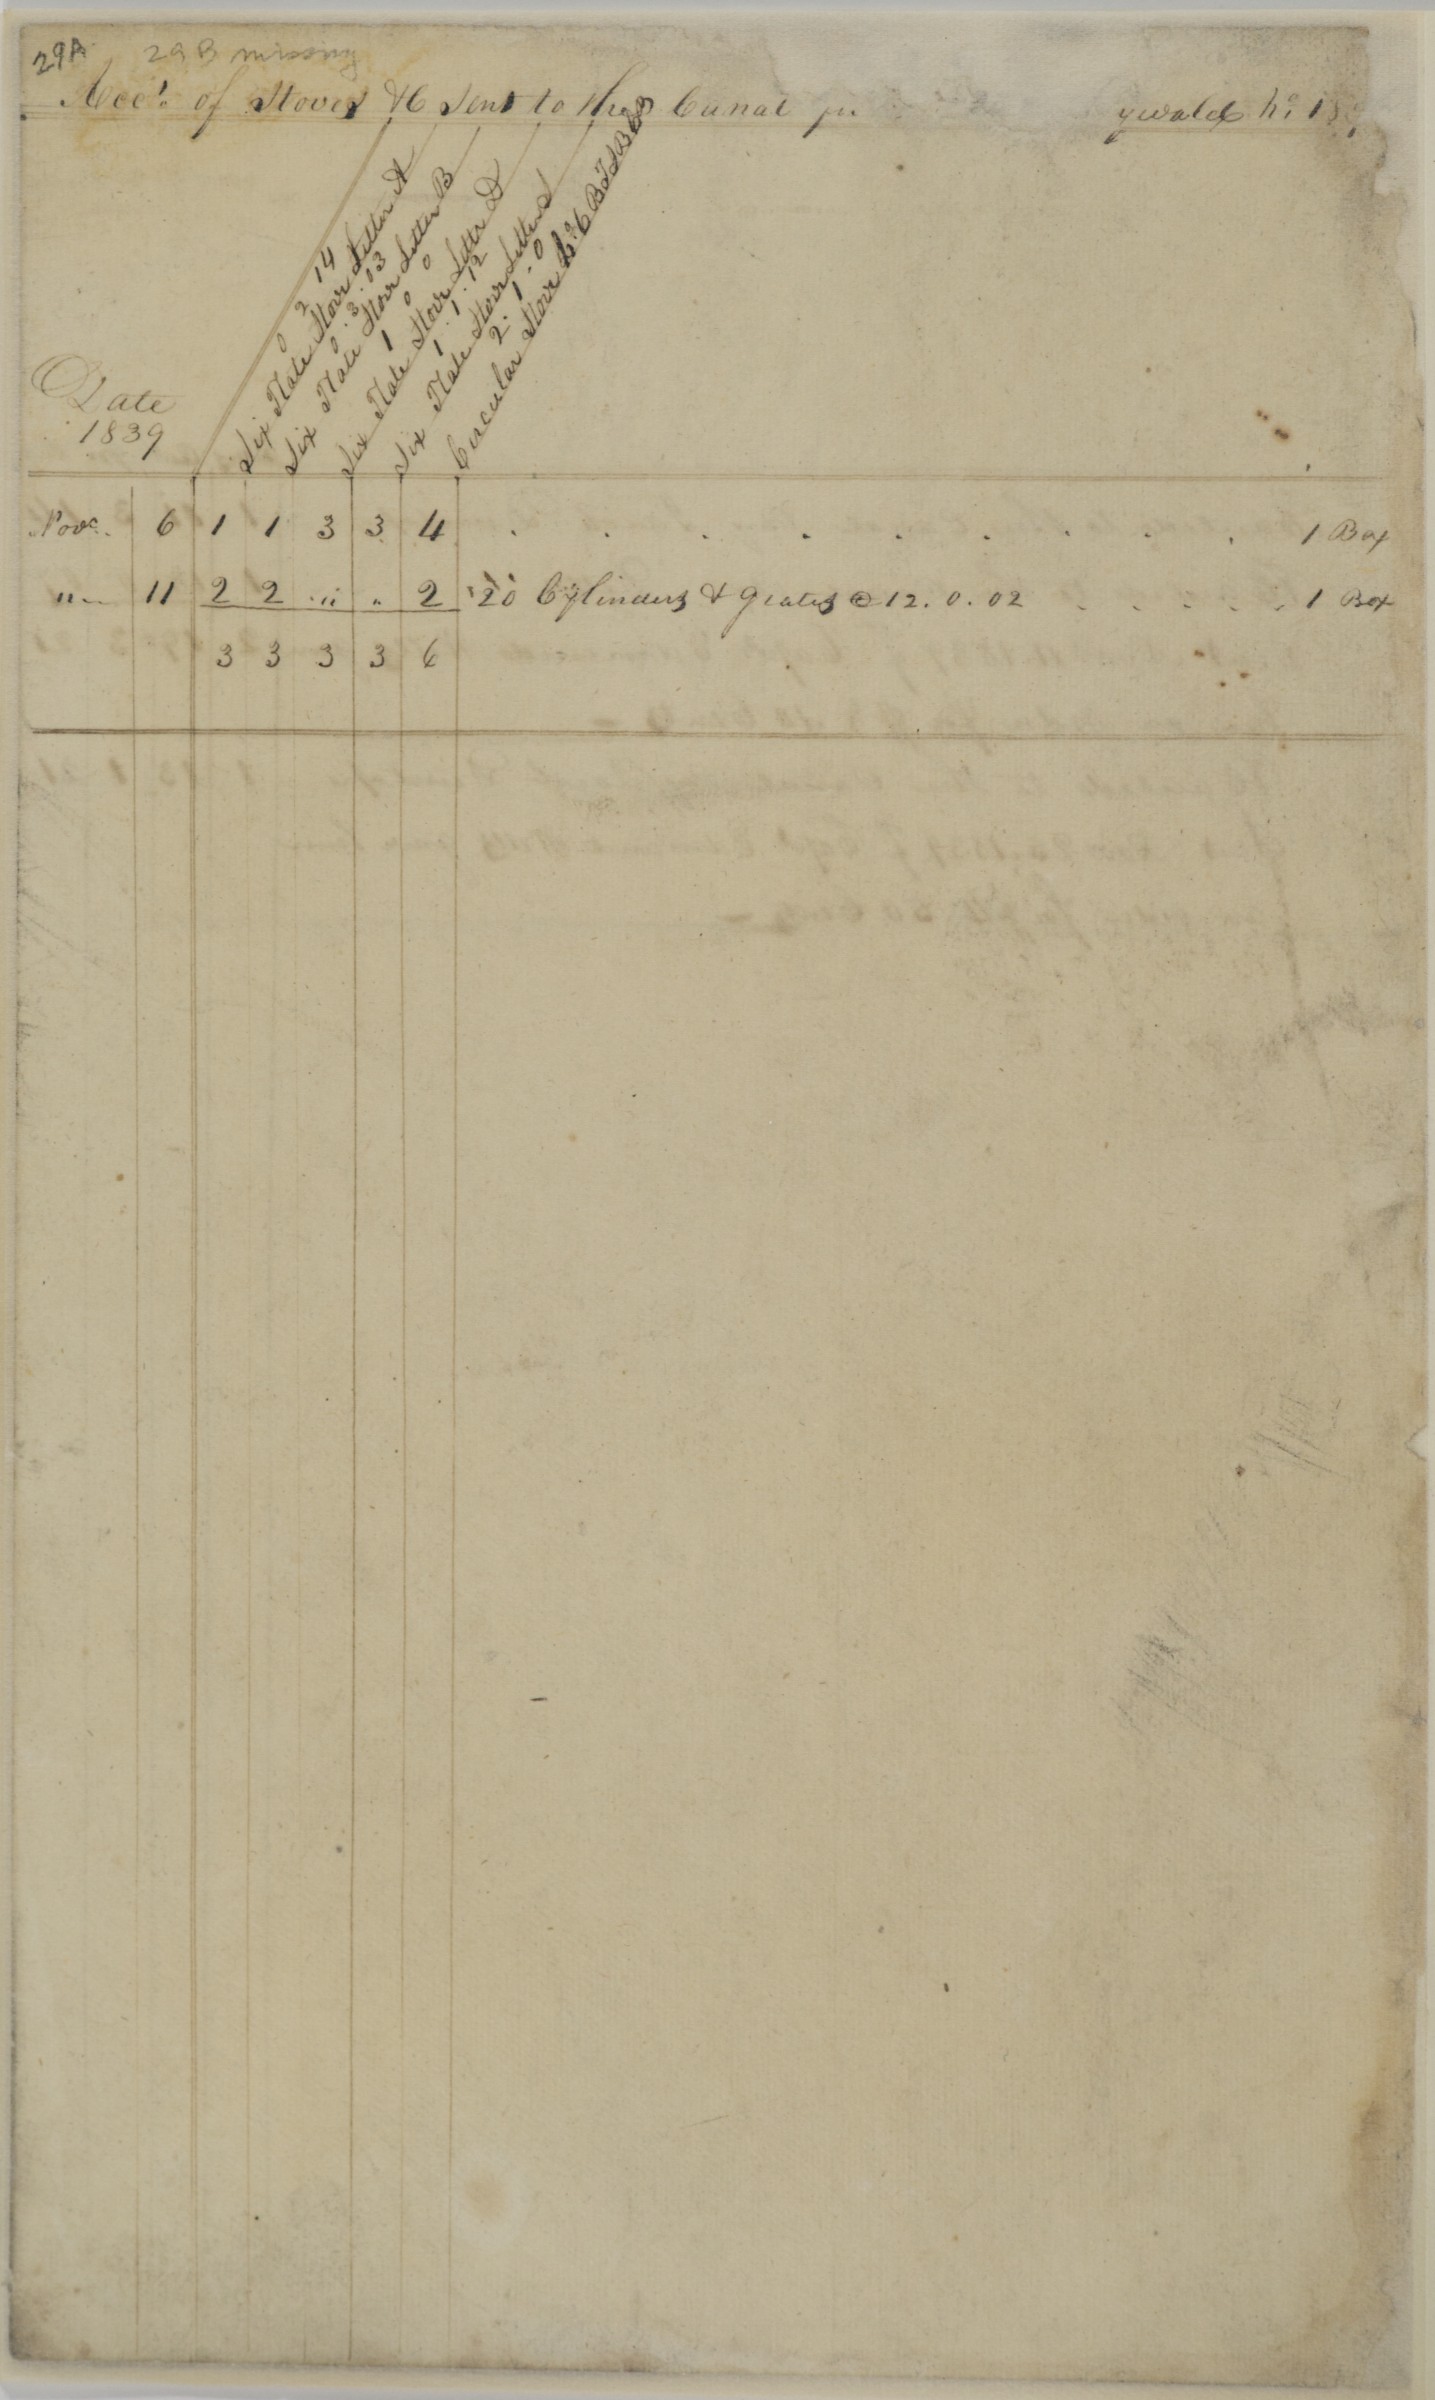 29A 29B missing
Acct. of Stoves &C Sent to the Canal per
Date
1839
0 2 14
Six Plate Stove Letter A
0 . 3 . 03
Six Plate Stove Letter B
1 0 0
Six Plate Stove Letter D
1 . 1 . 12
Six Plate Stove Letter
2 . 1 . 0
Circular Stove No 6
Nov. 6 1 1 3 3 4 . . . . . . . . . 1 Box
" 11 2 2 " " 2 20 Cylinders & grates @ 12. 0. 02 . . . . . 1 Box
3 3 3 3 6